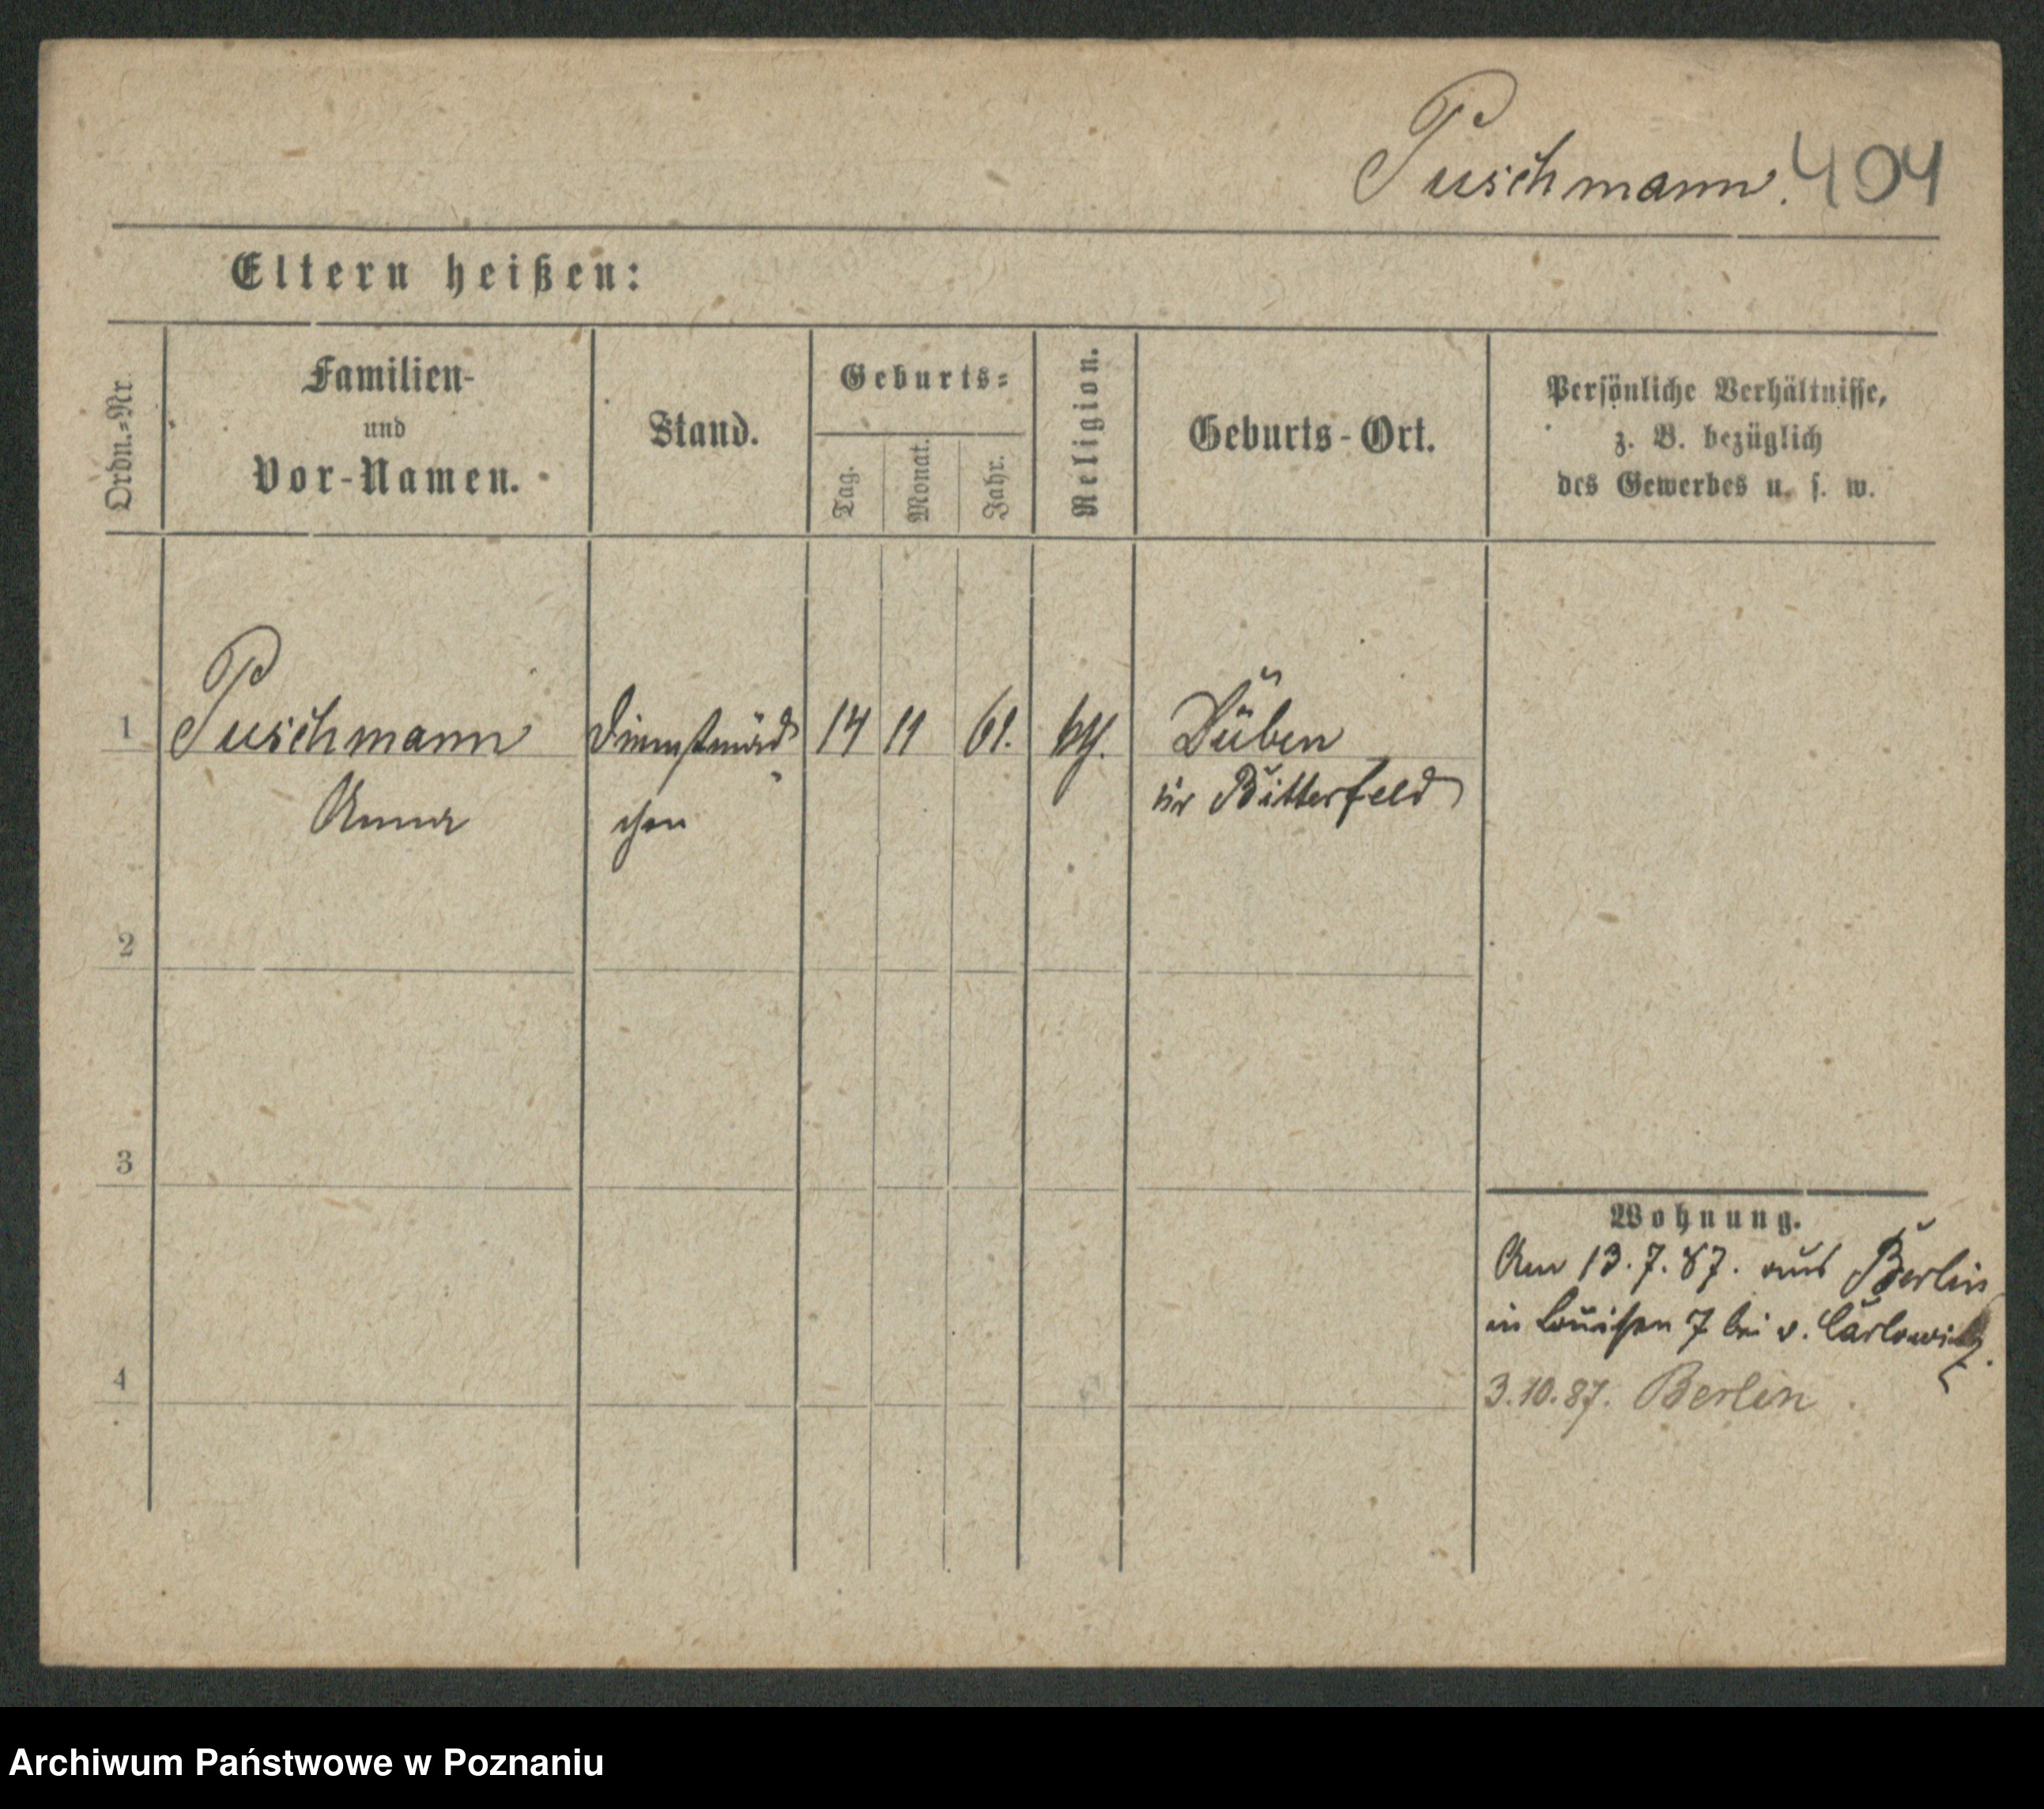 Puschmann. 404
Eltern heißen:
Ordn.-Nr.
Familien-
und
Vor-Namen.
Stand.
Geburts-
Tag.
Monat.
Jahr.
Religion.
Geburts-Ort.
Persönliche Verhältnisse,
z. B. bezüglich
des Gewerbes u. s. w.
1 Puschmann Dienstmäd 14 11 61. Düben
Anna chen Bitterfeld
2
3
4
Wohnung.
Am 13.7.87. aus Berlin
in Louisen 7 bei v. Carlowitz.
3.10.87. Berlin
Archiwum Państwowe w Poznaniu